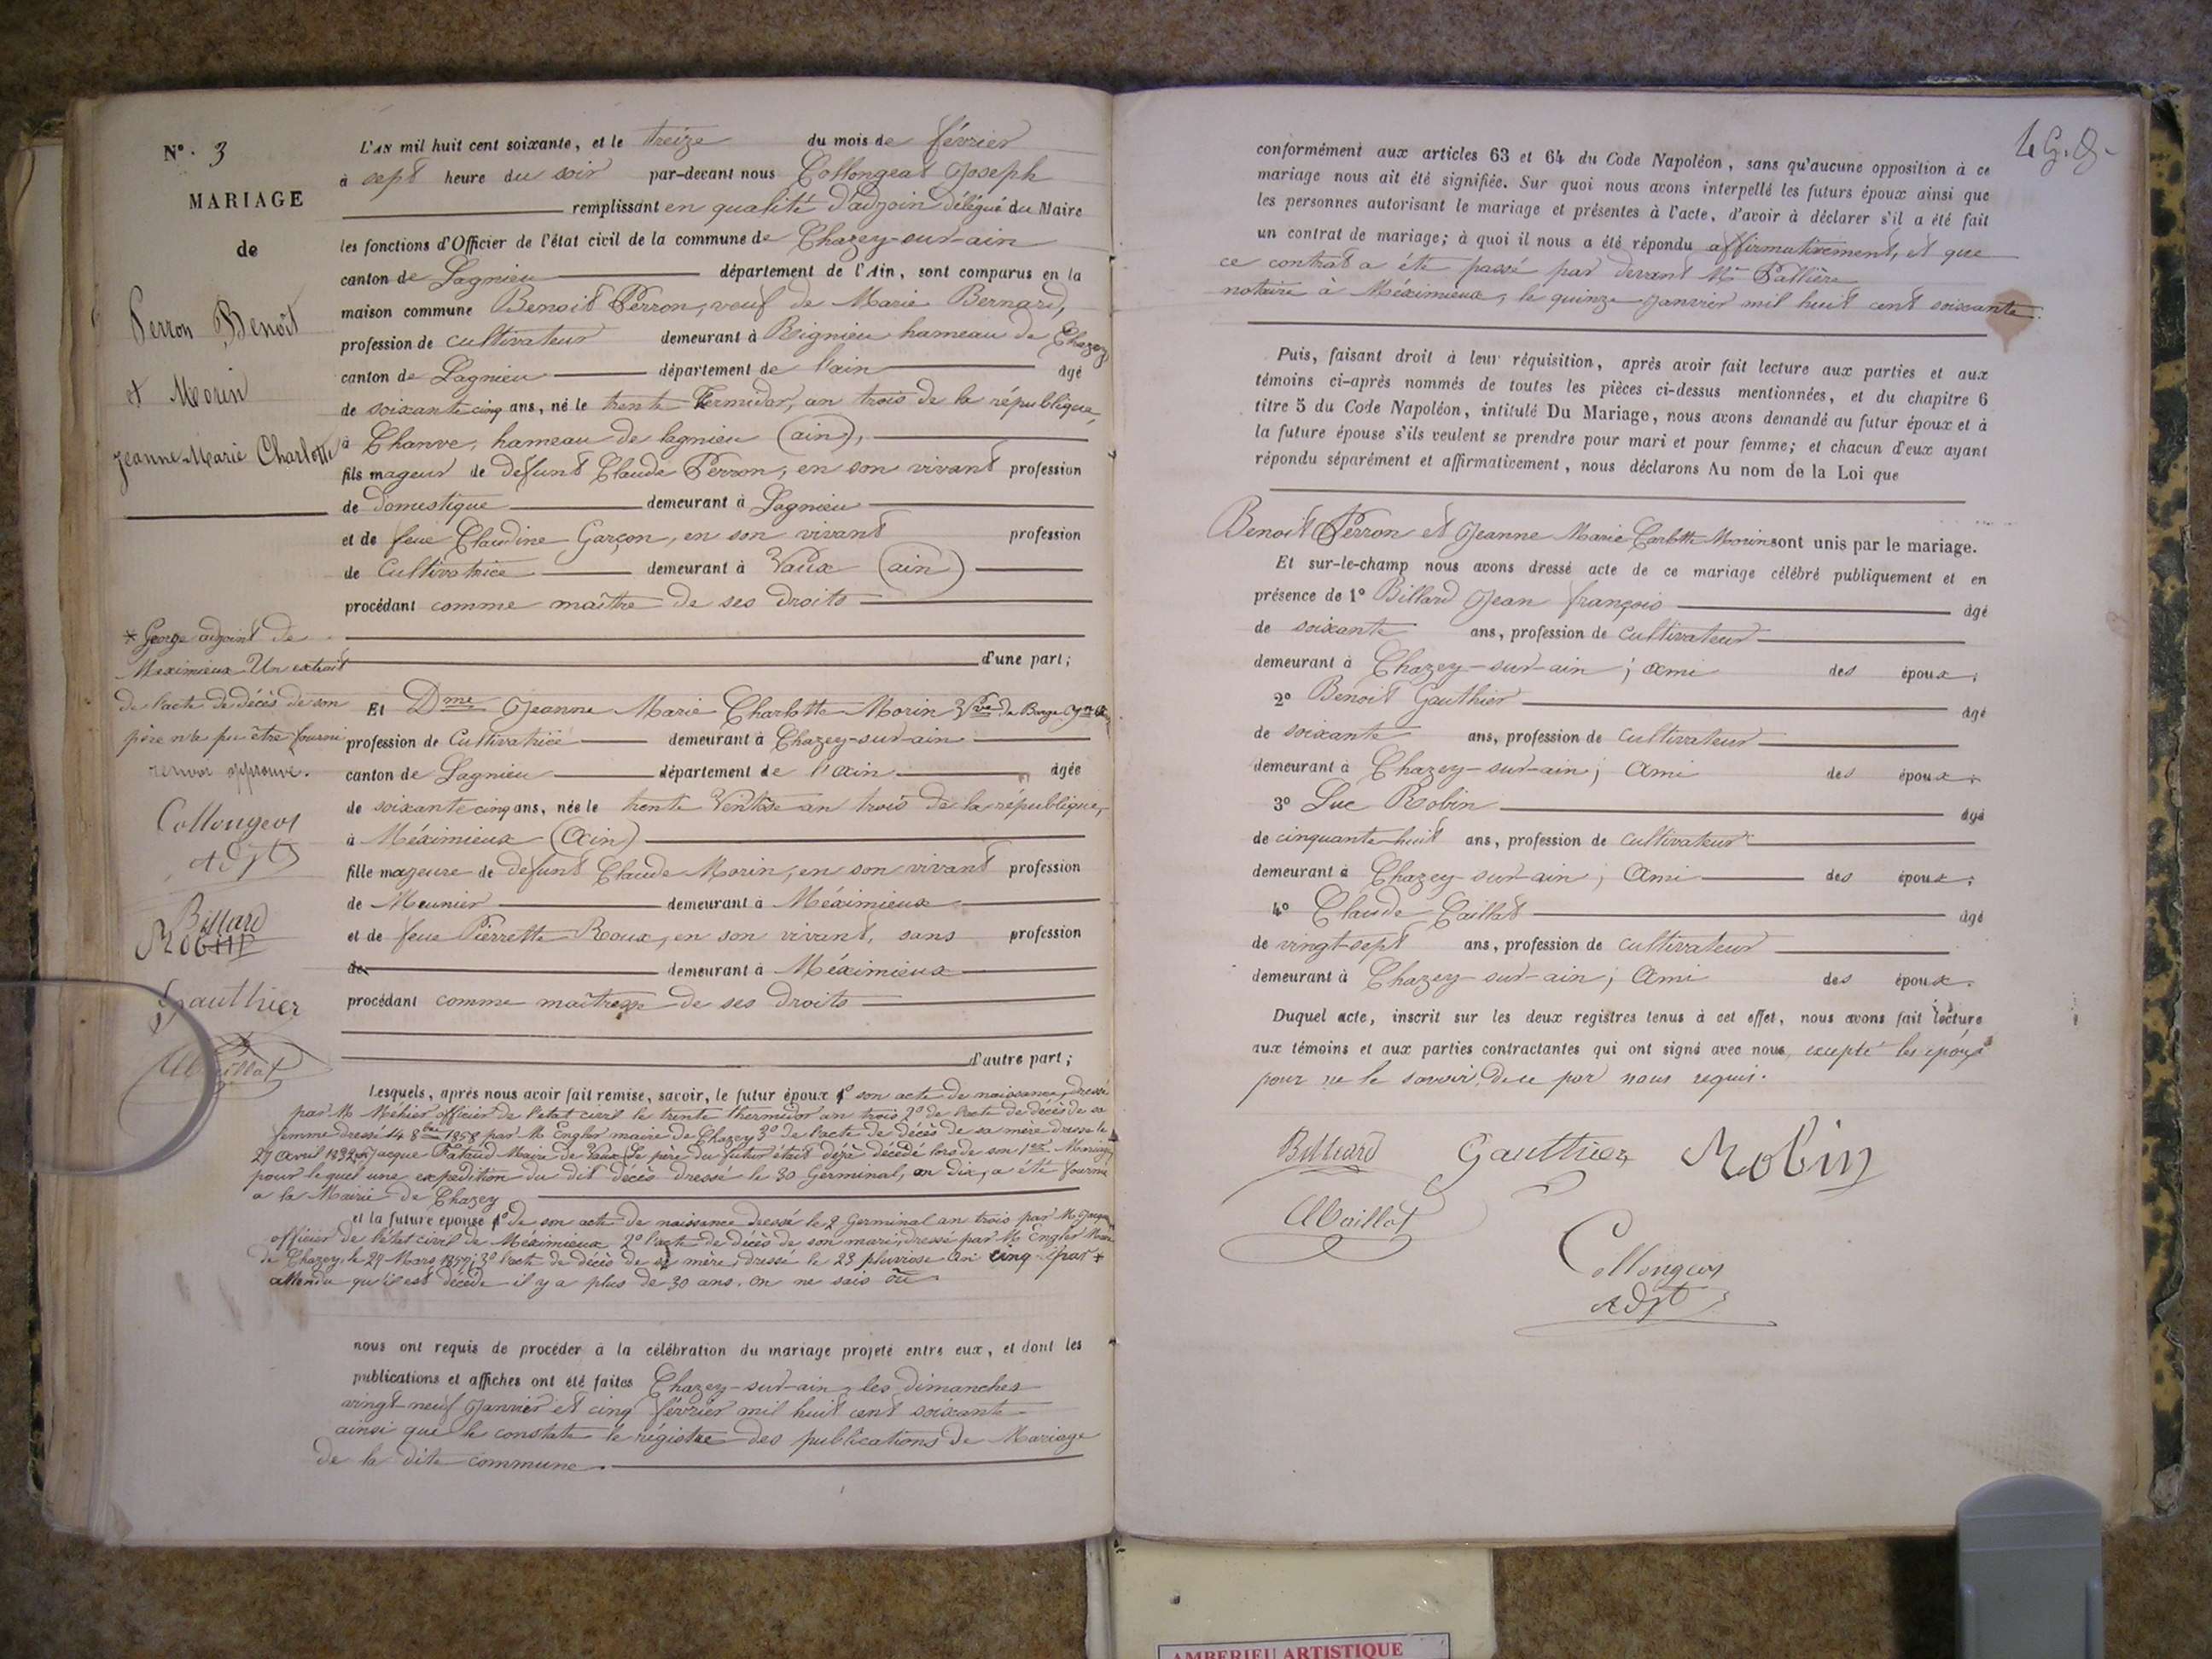 N° 3
MARIAGE
de
Perron Benoît
et Morin
Jeanne-Marie Charlotte
L'AN mil huit cent soixante, et le treize du mois de février
à sept heure du soir par-devant nous Collongeat Joseph
remplissant en qualité d'adjoin délégué du Maire
les fonctions d'Officier de l'état civil de la commune de Chazey-sur-ain
canton de Lagnieu département de l'Ain, sont comparus en la
maison commune Benoit Perron, veuf de Marie Bernard,
profession de cultivateur demeurant à Rignieu hameau de Chazey
canton de Lagnieu département de l'ain âgé
de soixante cinq ans, né le trente termidor, an trois de la république,
à Chanve, hameau de lagnieu (ain),
fils mageur de defunt Claude Perron, en son vivant profession
de domestique demeurant à Lagnieu
et de feue Claudine Garçon, en son vivant profession
de Cultivatrice demeurant à Vaux (ain)
procédant comme maître de ses droits
d'une part;
* George adjoint de
Meximieux Un extrait
de l'acte de décès de son
père n'a pu être fourni
renvoi approuvé.
Collongeat
adjt
Billard
Robin
Gauthier
Caillat
Et Dme Jeanne Marie Charlotte Morin Vve de Barge
profession de Cultivatrice demeurant à Chazey-sur-ain
canton de Lagnieu département de l'ain âgée
de soixante cinq ans, née le trente Ventose an trois de la république,
à Méximieux (Ain)
fille mageure de defunt Claude Morin, en son vivant profession
de Meunier demeurant à Méximieux
et de feue Pierrette Roux, en son vivant, sans profession
de demeurant à Méximieux
procédant comme maîtresse de ses droits
d'autre part;
Lesquels, après nous avoir fait remise, savoir, le futur époux 1° son acte de naissance, dressé
par M Méhier officier de l'état civil le trente thermidor an trois 2° de l'acte de décès de sa
femme dressé 14 8bre 1858 par M Engler maire de Chazey 3° de l'acte de décès de sa mère dressé le
27 avril 1832 Jacque Maire de Vaux (le père du futur était déjà décédé lors de son 1er Mariage
pour lequel une expedition du dit décès dressé le 30 Germinal, an dix, a été fournie
a la Mairie de Chazey
et la future épouse 1° de son acte de naissance dressé le 2 Germinal an trois par M
officier de l'état civil de Meximieux 2° l'acte de décès de son mari, dressé par M Engler Maire
de Chazey, le 29 Mars 3° l'acte de décès de sa mère, dressé le 23 pluviose an cinq par *
attendu qu'il est décédé il y a plus de 30 ans. on ne sais où
nous ont requis de procéder à la célébration du mariage projeté entre eux, et dont les
publications et affiches ont été faites Chazey-sur-ain, les dimanches
vingt-neuf Janvier et cinq février mil huit cent soixante
ainsi que le constate le régistre des publications de Mariage
de la dite commune.
conformément aux articles 63 et 64 du Code Napoléon, sans qu'aucune opposition à ce
mariage nous ait été signifiée. Sur quoi nous avons interpellé les futurs époux ainsi que
les personnes autorisant le mariage et présentes à l'acte, d'avoir à déclarer s'il a été fait
un contrat de mariage; à quoi il nous a été répondu affirmativement, et que
ce contrat a été passé par devant Me Pallière
notaire à Méximieux, le quinze Janvier mil huit cent soixante.
Puis, faisant droit à leur réquisition, après avoir fait lecture aux parties et aux
témoins ci-après nommés de toutes les pièces ci-dessus mentionnées, et du chapitre 6
titre 5 du Code Napoléon, intitulé Du Mariage, nous avons demandé au futur époux et à
la future épouse s'ils veulent se prendre pour mari et pour femme; et chacun d'eux ayant
répondu séparément et affirmativement, nous déclarons Au nom de la Loi que
Benoit Perron et Jeanne Marie Carlotte Morin sont unis par le mariage.
Et sur-le-champ nous avons dressé acte de ce mariage célébré publiquement et en
présence de 1° Billard Jean françois âgé
de soixante ans, profession de cultivateur
demeurant à Chazey-sur-ain; ami des époux;
2° Benoit Gauthier âgé
de soixante ans, profession de cultivateur
demeurant à Chazey-sur-ain; Ami des époux;
3° Luc Robin âgé
de cinquante-huit ans, profession de cultivateur
demeurant à Chazey-sur-ain; Ami des époux;
4° Claude Caillat âgé
de vingt-sept ans, profession de cultivateur
demeurant à Chazey-sur-ain; Ami des époux.
Duquel acte, inscrit sur les deux registres tenus à cet effet, nous avons fait lecture
aux témoins et aux parties contractantes qui ont signé avec nous, excepté les époux
pour ne le savoir de ce par nous requis.
Billiard Gauthier Robin
Caillat
Collongeat
adjt
AMBERIEU ARTISTIQUE